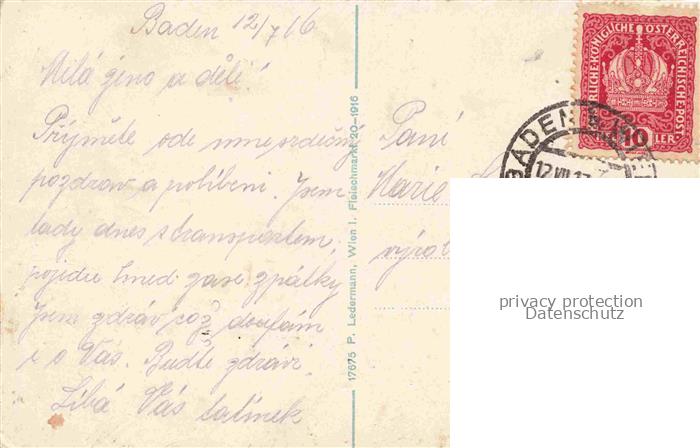 Baden 12/7 16
Milá ženo a děti!
Přijměte ode mne srdečný
pozdrav a políbení. Jsem
tady dnes s transportem,
pojedu hned zase zpátky
Jsem zdráv což doufám
i o Vás. Buďte zdrávi
Líbá Vás tatínek
17675 P. Ledermann, Wien I. Fleischmarkt 20-1916
Paní
Marie
KAISERLICHE KÖNIGLICHE ÖSTERREICHISCHE POST
10
HELLER
BADEN
12 VII
privacy protection
Datenschutz